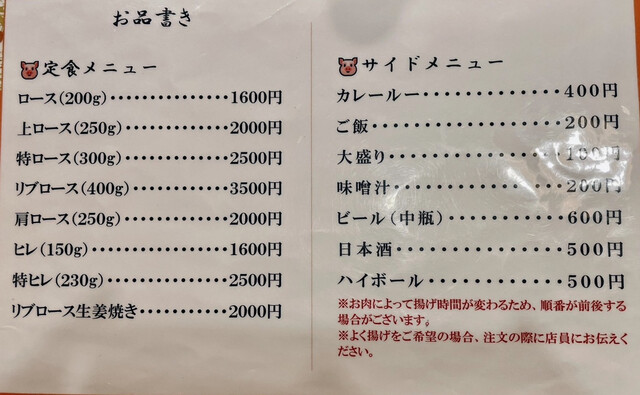 お品書き
定食メニュー
ロース(200g)・・・・・・・・・・・・・1600円
上ロース(250g)・・・・・・・・・・・・2000円
特ロース(300g)・・・・・・・・・・・・2500円
リブロース(400g)・・・・・・・・・・3500円
肩ロース(250g)・・・・・・・・・・・・2000円
ヒレ(150g)・・・・・・・・・・・・・・・1600円
特ヒレ(230g)・・・・・・・・・・・・・2500円
リブロース生姜焼き・・・・・・・・・2000円
サイドメニュー
カレールー・・・・・・・・・・・・・400円
ご飯・・・・・・・・・・・・・・・・・200円
大盛り・・・・・・・・・・・・・・・・100円
味噌汁・・・・・・・・・・・・・・・・200円
ビール(中瓶)・・・・・・・・・・・600円
日本酒・・・・・・・・・・・・・・・・500円
ハイボール・・・・・・・・・・・・・500円
※お肉によって揚げ時間が変わるため、順番が前後する
場合がございます。
※よく揚げをご希望の場合、注文の際に店員にお伝えく
ださい。